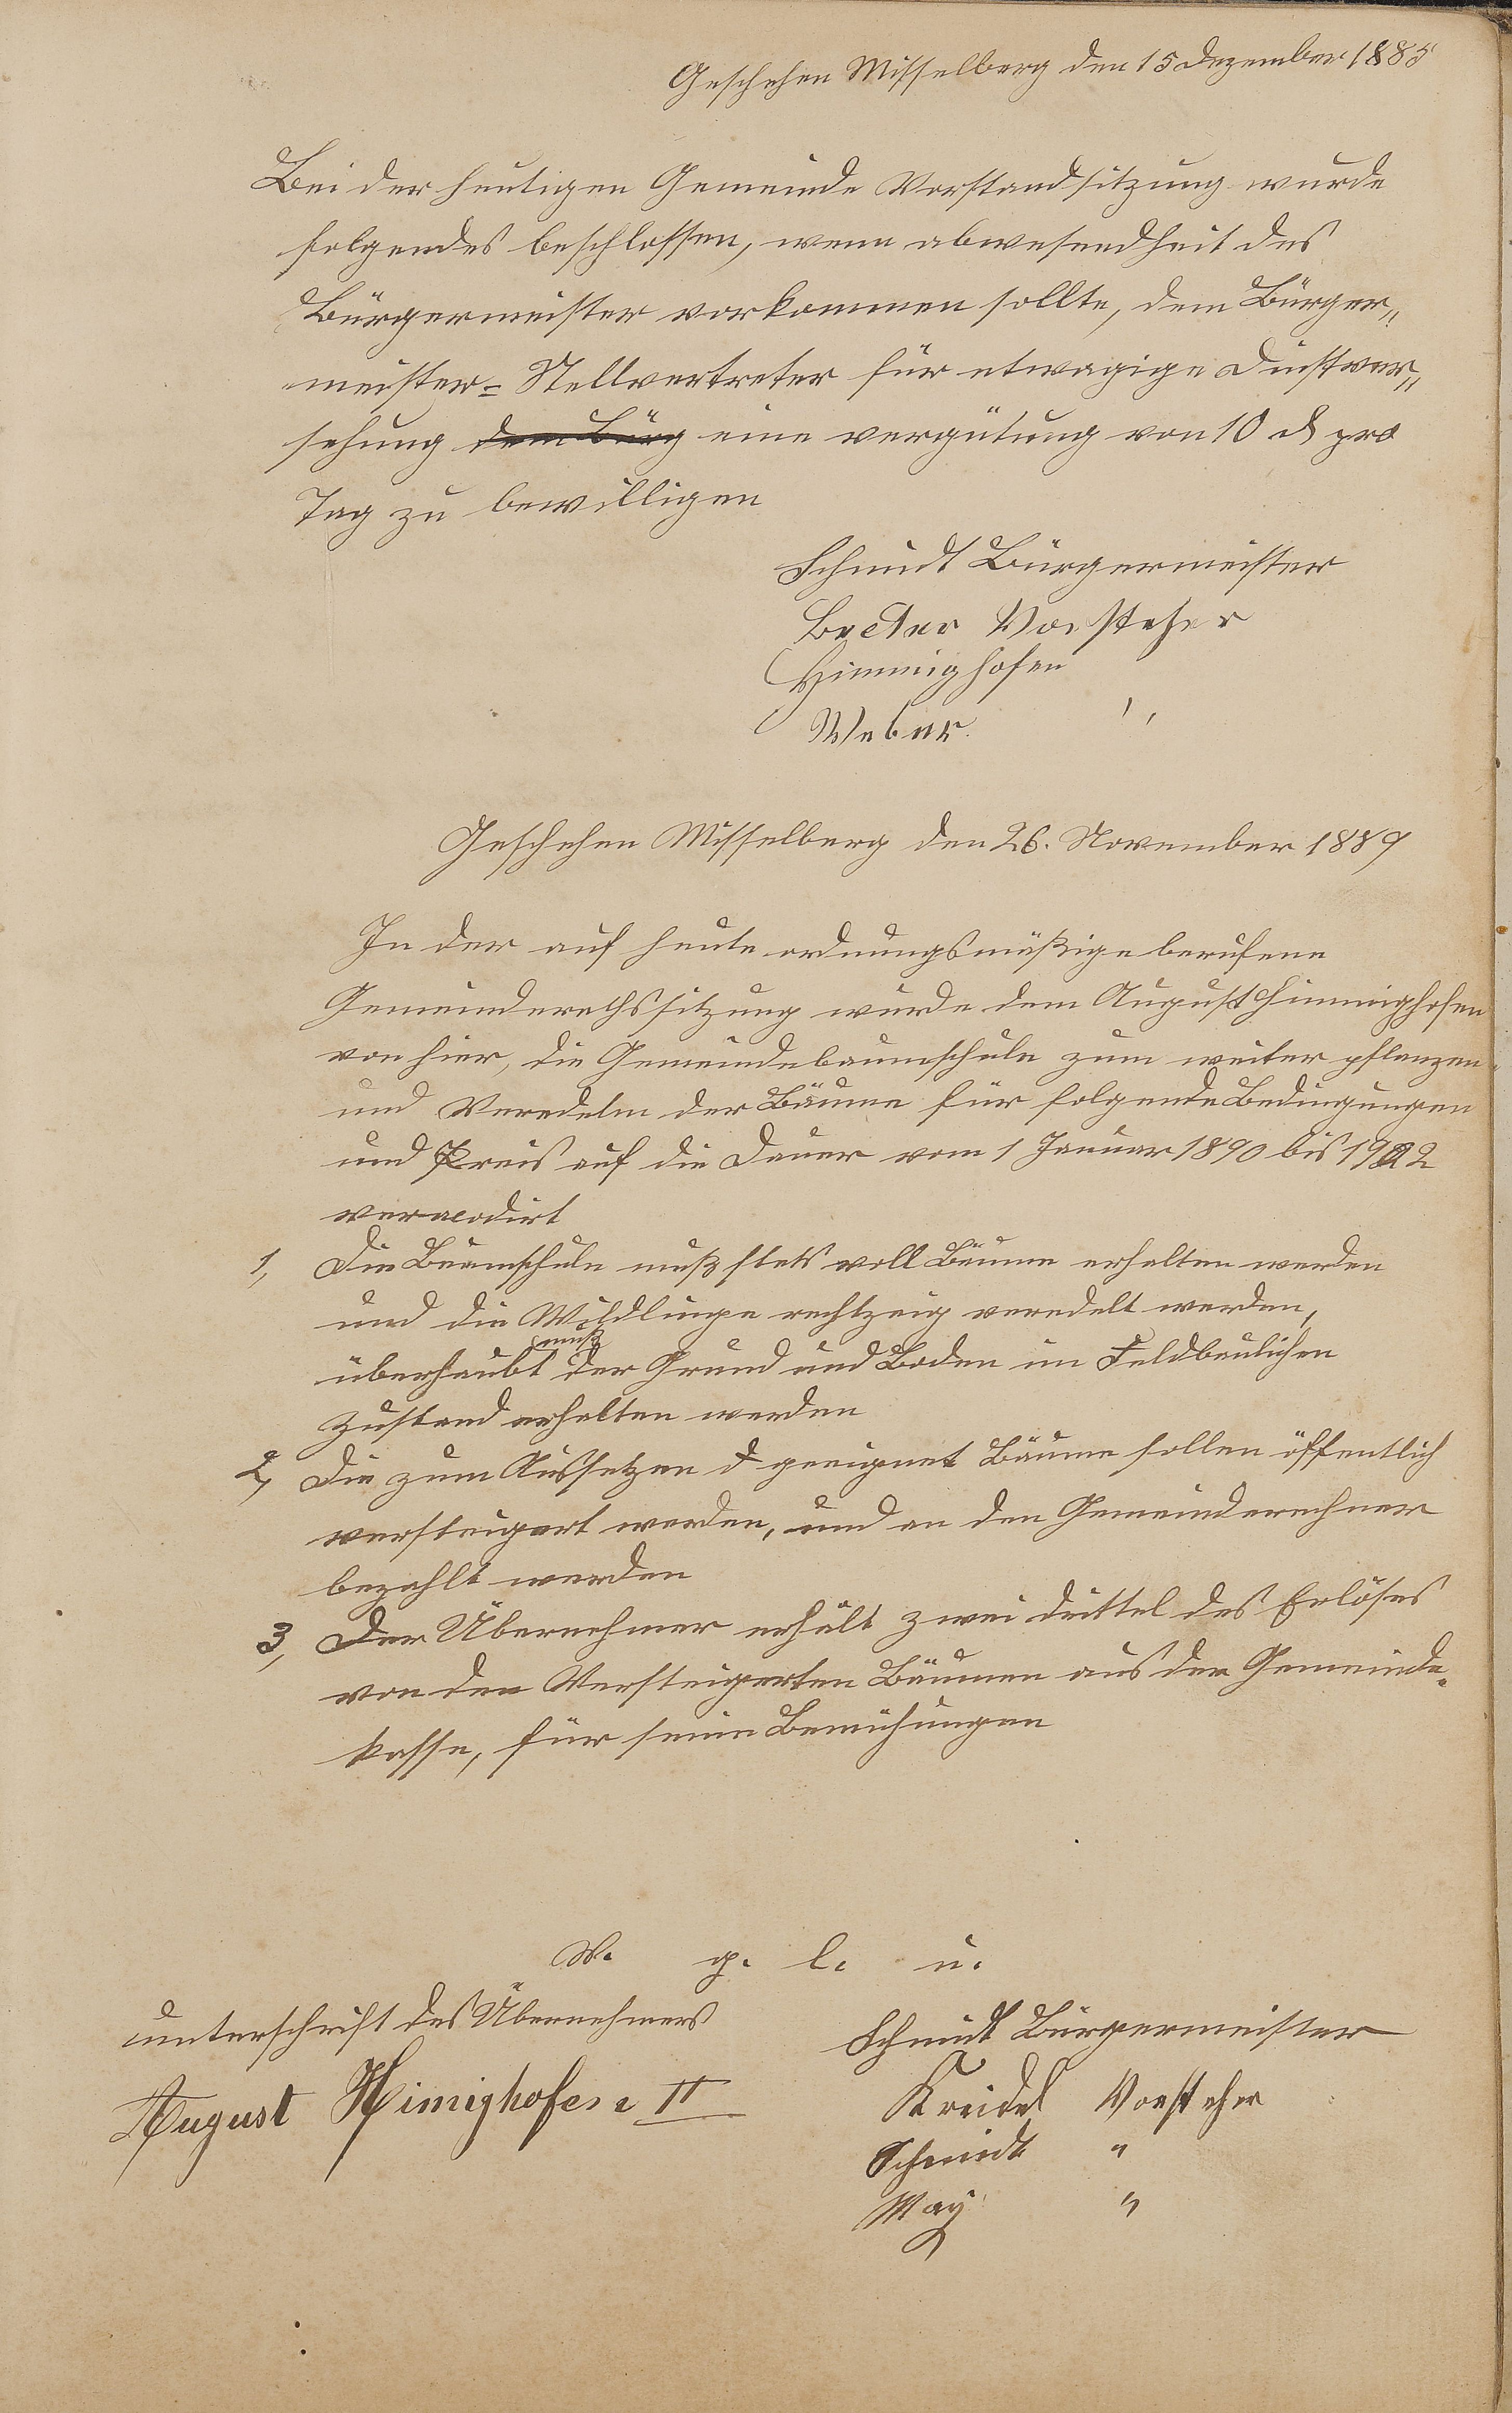 Geschehen Misselberg den 15 Dezember 1885
Bei der heutigen Gemeinde Vorstandsitzung wurde
folgendes beschlossen, wenn abwesendheit des
Bürgermeister vorkommen sollte, dem Bürger„
meister= Stellvertreter für etwagige Dinstver„
sehung dem Bürg eine vergütung von 10 ₰ pro
Tag zu bewilligen
Schmidt Bürgermeister
Becker Vorsteher
Himmighofen
Weber "
Geschehen Misselberg den 26. November 1889
In der auf heute ordnungsmäßige berufene
Gemeinderathssitzung wurde dem August Himmighofen
von hier, die Gemeindebaumschule zum weiter pflanzen
und Veredeln der Bäume für folgende Bedingungen
und Preis auf die Dauer vom 1 Januar 1890 bis 1902
veracodirt
1, Die Baumschule muß stets voll Bäume erhalten werden
und die Wildlinge rechtzeig veredelt werden,
muß
überhaubt der Grund und Boden im Feldbaulichen
Zustand erhalten werden
2, Die zum Aussetzen geeignet Bäume sollen öffentlich
versteigert werden, und an den Gemeinderechner
bezahlt werden
3, Der Übernehmer erhält zwei drittel des Erlöses
von den Versteigerten Bäumen aus der Gemeinde=
kasse, für seine Bemühungen
V. g. l. u.
unterschrift des Übernehmers
August Himighofen II
Schmidt Bürgermeister
Kreidel Vorsteher
Schmidt "
May "